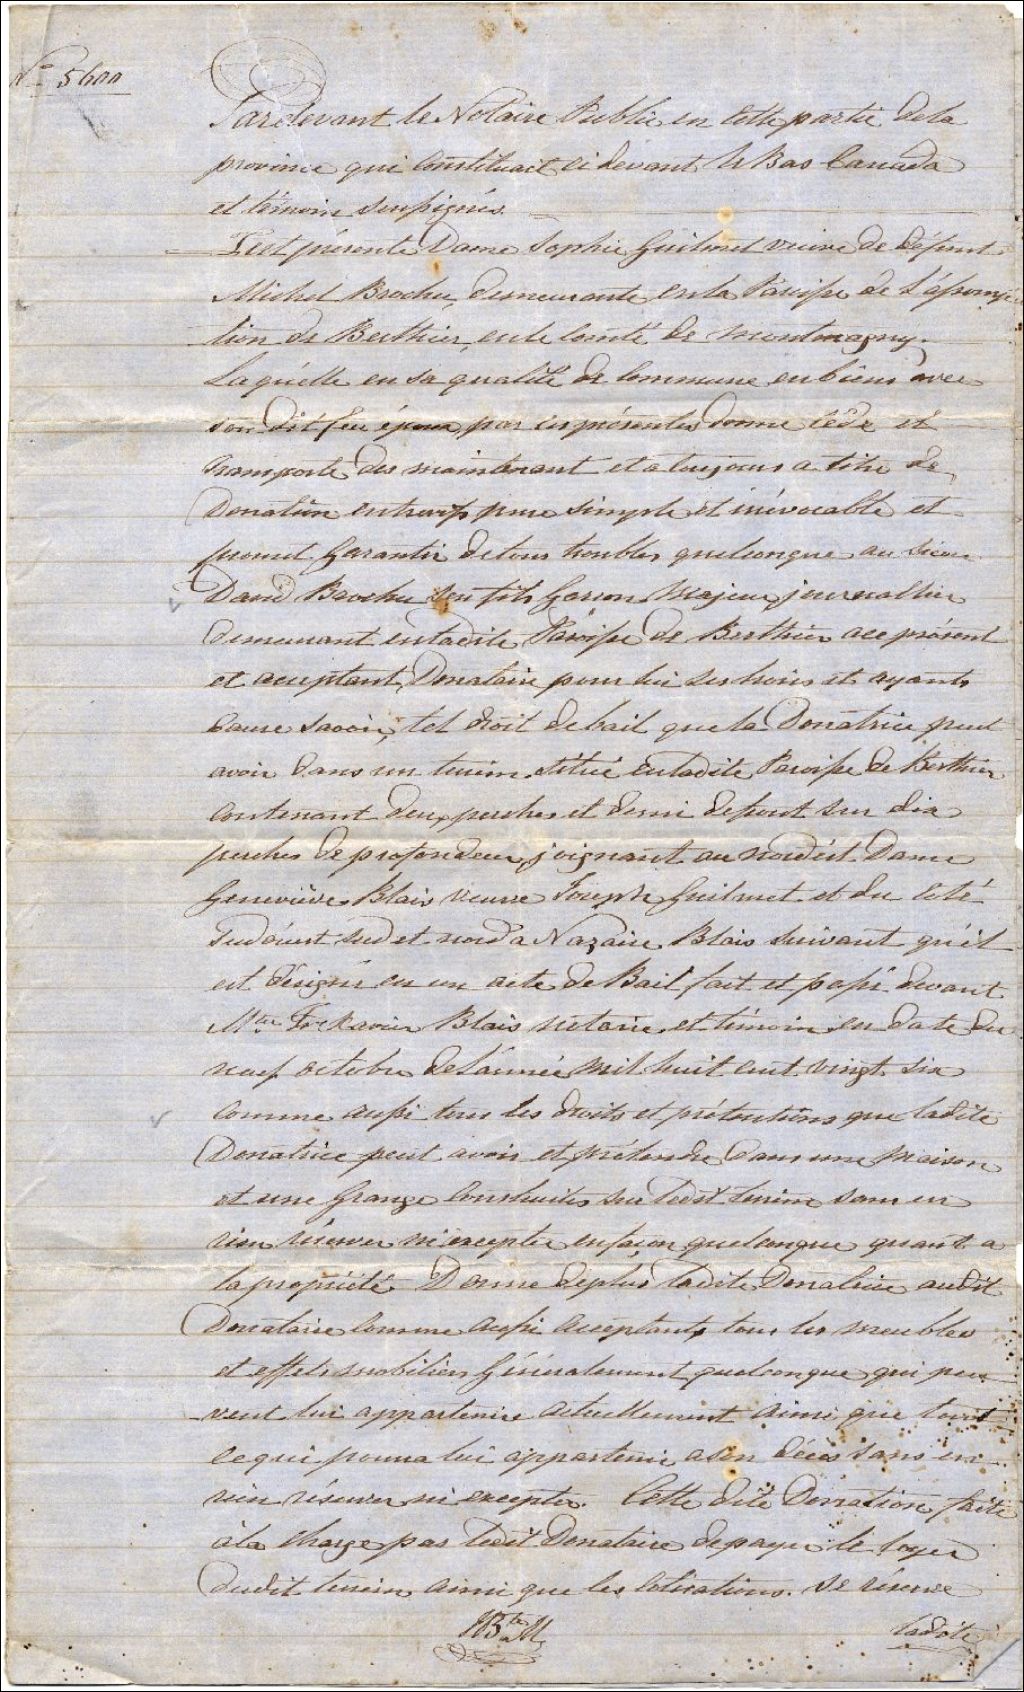 No 5600
Pardevant le Notaire Public en cette partie de la
province qui constituait ci devant le Bas Canada
et témoin soussignés.
Fut présente Dame Sophie Guilmet veuve de défunt
Michel Brochu, demeurante en la Paroisse de L'assomp
tion de Berthier, en le Comté de Montmagny.
Laquelle en sa qualité de Commune en biens avec
son dit feu époux, par ces présentes donne cède et
Transporte des maintenant et a toujours a titre de
Donation entrevifs pure simple et irrévocable et
promet Garantir de tous troubles quelconque au Sieur
David Brochu son fils Garson Majeur journallier
demeurant en ladite Paroisse de Berthier a ce présent
et acceptant, Donataire pour lui ses hoirs et ayants
Cause savoir, tel droit de bail que la Donatrice peut
avoir dans un terrein situé en ladite Paroisse de Berthier
contenant deux perches et demi de front sur dix
perches de profondeur, joignant au nordest Dame
Geneviève Blais veuve Joseph Guilmet et du coté
Sudouest sud et nord a Nazaire Blais suivant qu'il
est désigné en un acte de Bail fait et passé devant
Mtre Frs Xavier Blais notaire et témoin en date du
neuf octobre de L'année mil huit cent vingt six
Comme aussi tous les droits et prétentions que ladite
Donatrice peut avoir et prétendre dans une maison
et une Grange Construites sur ledit terrein sans en
rien réserver ni excepter en façon quelconque quant a
la propriété. Donne de plus ladite Donatrice audit
Donataire comme aussi acceptant, tous les meubles
et effets mobiliers Généralement quelconque qui peu
vent lui appartenire actuellement ainsi que tout
ce qui pourra lui appartenir a son décès sans en
rien réserver ni excepter. Cette dite Donation faite
à la Charge par ledit Donataire de payer le loyer
dudit terrein ainsi que les cotisations. Se réserve
JBte M
ladite